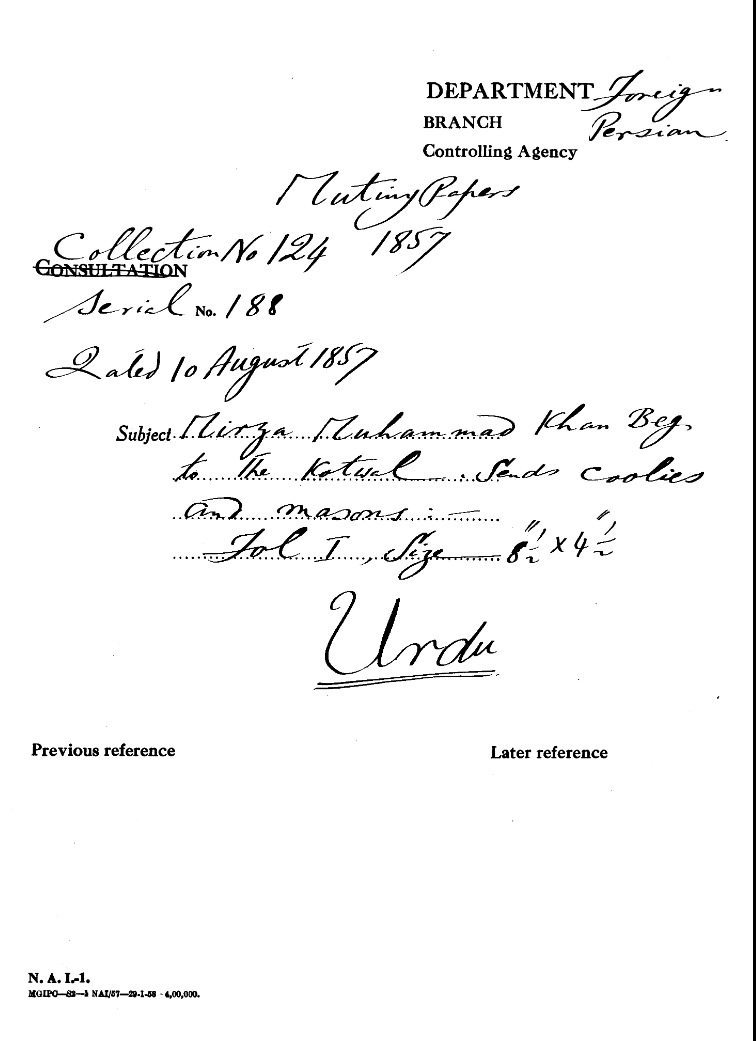 DEPARTMENT Foreign
BRANCH Persian
Controlling Agency
Mutiny Papers
Collection No 124 1857
CONSULTATION
Serial No. 188
Dated 10 August 1857
Subject Mirza Muhammad Khan Beg.
to the Kotwal. Sends coolies
and masons :—
Fol I, Size — 8½" x 4½"
Urdu
Previous reference Later reference
N. A. I.-1.
MGIPC—S2—3 NAI/57—29-1-58 - 4,00,000.